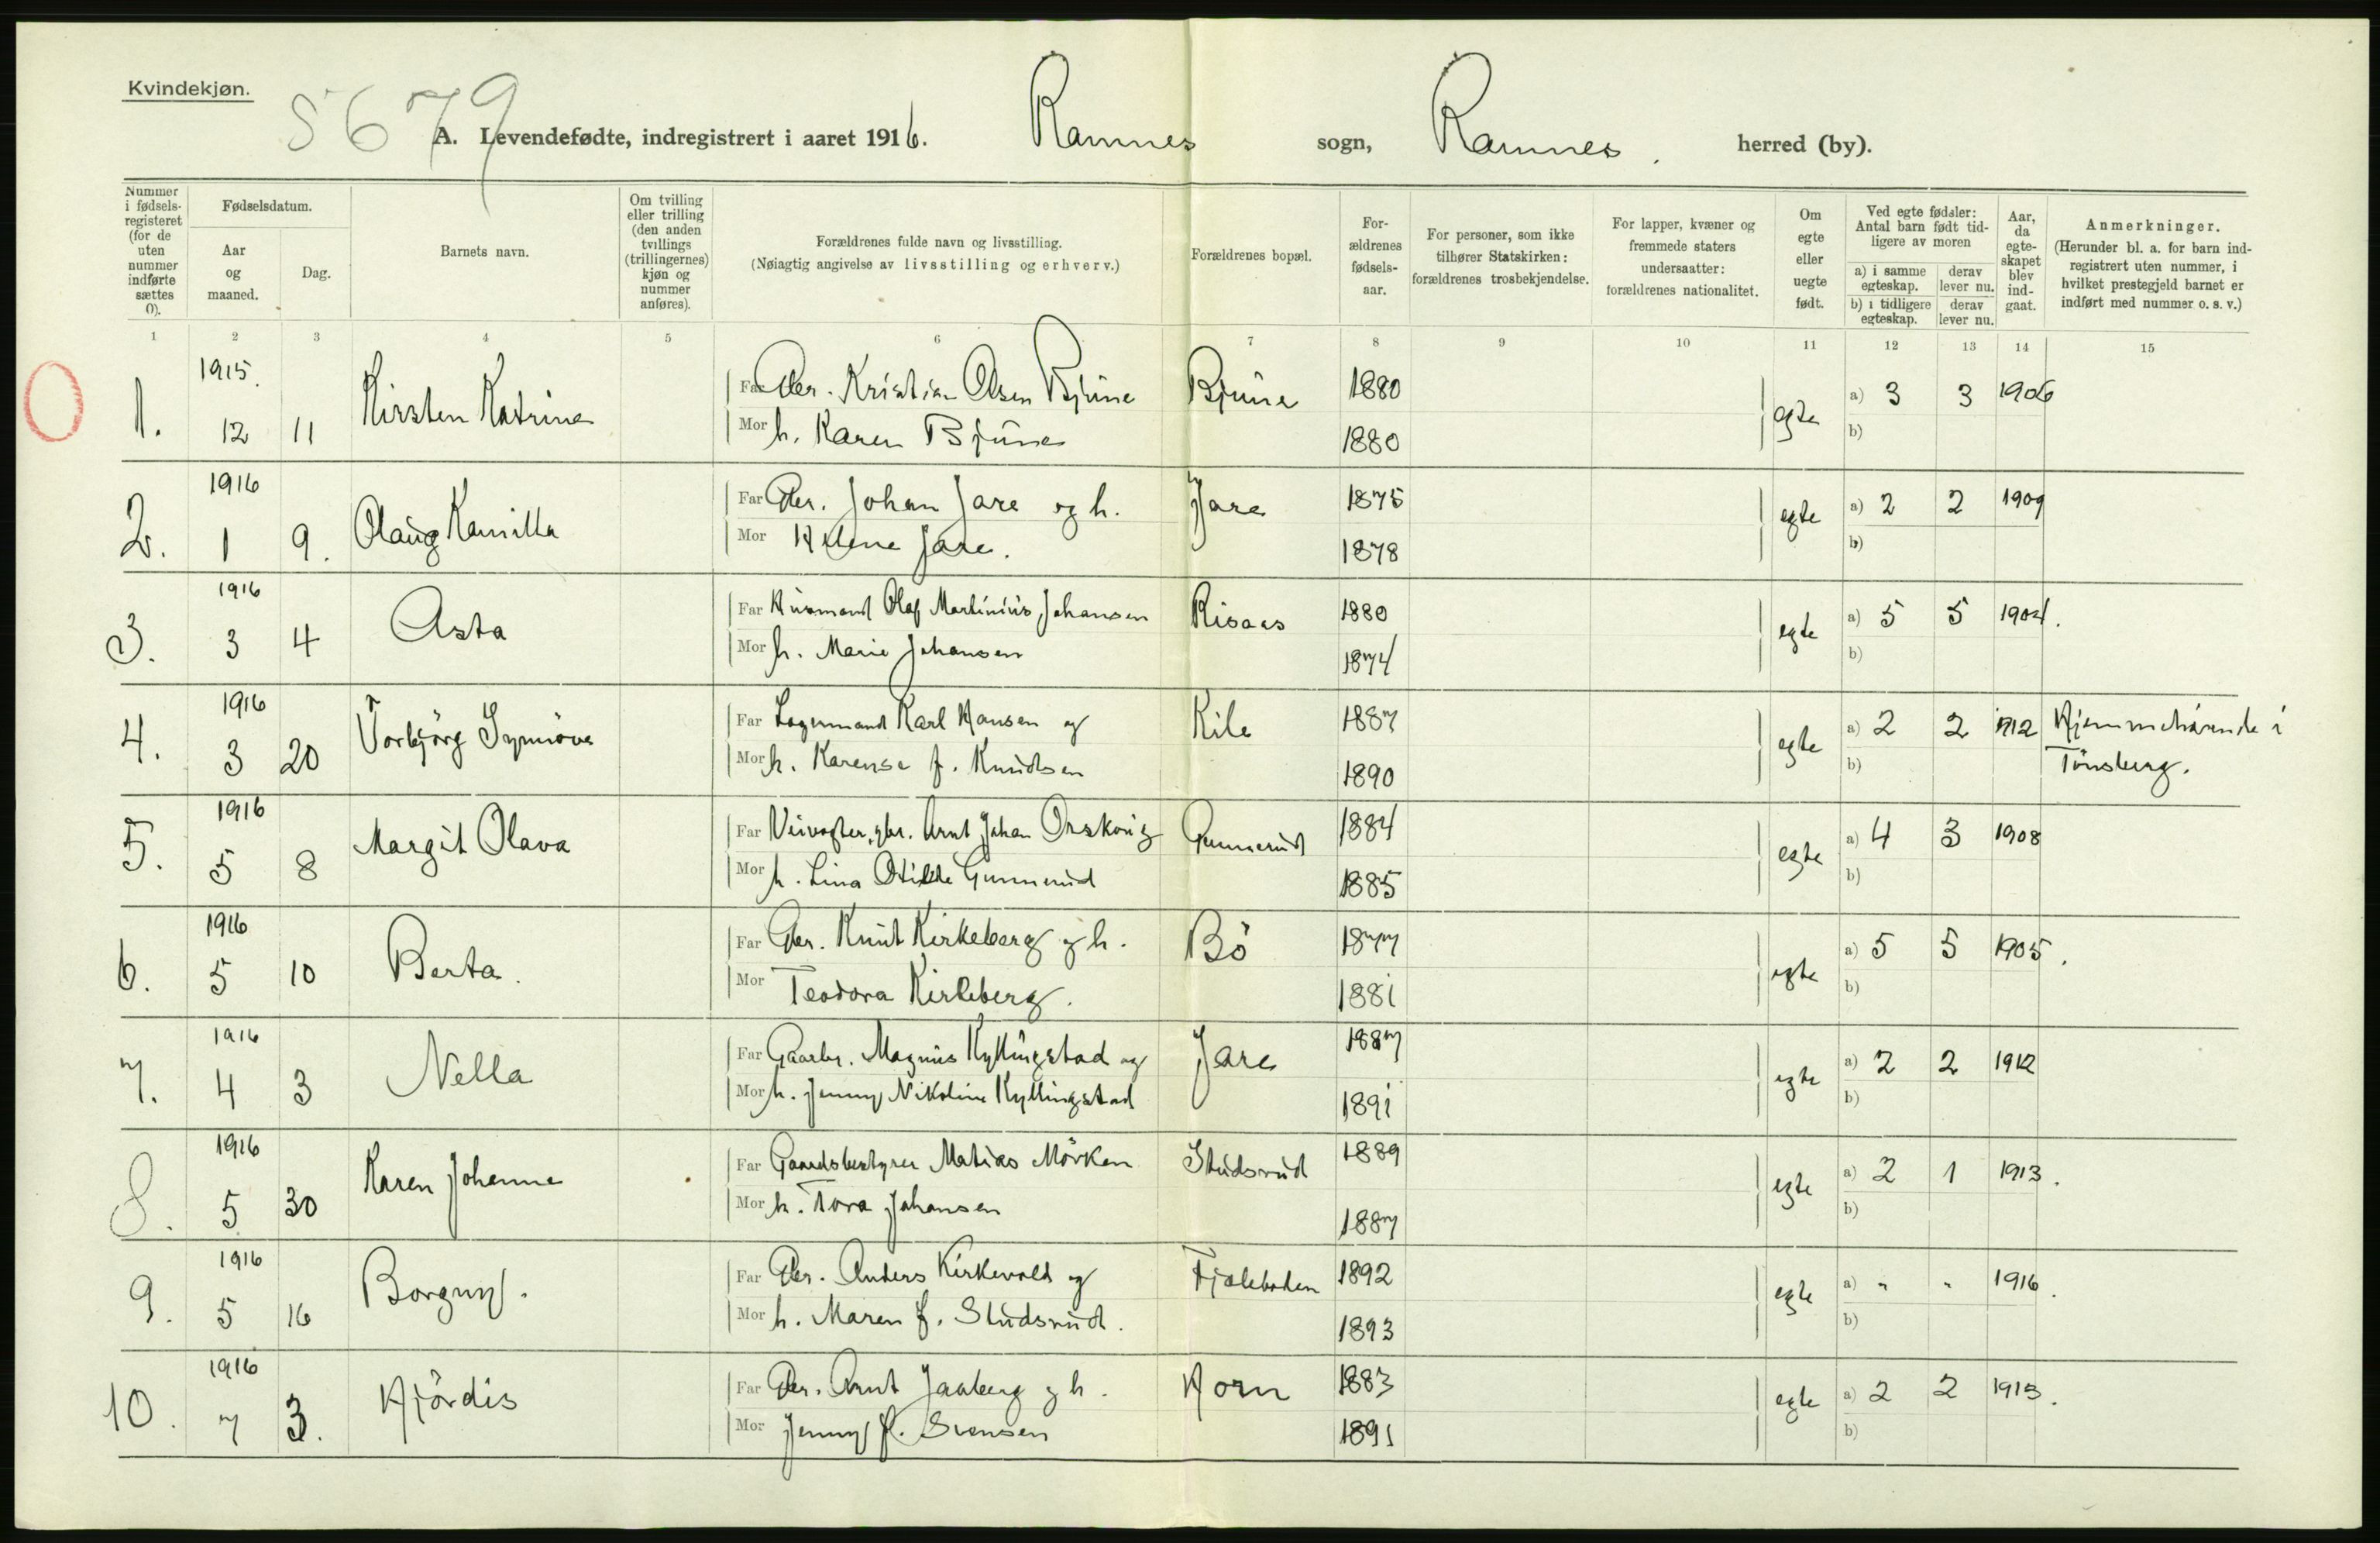 Kvindekjøn.
5679
A. Levendefødte, indregistrert i aaret 1916. Ramnes sogn, Ramnes. herred (by).
Nummer i fødsels-registeret (for de uten nummer indførte sættes 0).
Fødselsdatum.
Aar og maaned.
Dag.
Barnets navn.
Om tvilling eller trilling (den anden tvillings (trillingernes) kjøn og nummer anføres).
Forældrenes fulde navn og livsstilling.
(Nøiagtig angivelse av livsstilling og erhverv.)
Forældrenes bopæl.
For-ældrenes fødsels-aar.
For personer, som ikke tilhører Statskirken: forældrenes trosbekjendelse.
For lapper, kvæner og fremmede staters undersaatter: forældrenes nationalitet.
Om egte eller uegte født.
Ved egte fødsler: Antal barn født tid-ligere av moren
a) i samme egteskap. derav lever nu.
b) i tidligere egteskap. derav lever nu.
Aar, da egte-skapet blev ind-gaat.
Anmerkninger.
(Herunder bl. a. for barn ind-registrert uten nummer, i hvilket prestegjeld barnet er indført med nummer o. s. v.)
1 2 3 4 5 6 7 8 9 10 11 12 13 14 15
1. 1915. 12 11 Kirsten Katrine Far Gbr. Kristian Olsen Bjune Bjune 1880 egte a) 3 3 1906
Mor h. Karen Bjune 1880 b)
2. 1916 1 9. Olaug Kamilla Far Gbr. Johan Jare og h. Jare 1875 egte a) 2 2 1909
Mor Helene Jare. 1878 b)
3. 1916 3 4 Asta Far Husmand Olaf Martinius Johansen Risaas 1880 egte a) 5 5 1904.
Mor h. Marie Johansen 1874 b)
4. 1916 3 20 Torbjörg Synnöve Far Lagermand Karl Hansen og Kile 1887 egte a) 2 2 1912 Hjemmehörende i
Mor h. Karense f. Knudsen 1890 b) Tönsberg.
5. 1916 5 8 Margit Olava Far Veivogter, gbr. Arnt Johan Orskoug Gunnerud 1884 egte a) 4 3 1908
Mor h. Lina Otilde Gunnerud 1885 b)
6. 1916 5 10 Berta. Far Gbr. Knut Kirkeberg og h. Bö 1877 egte a) 5 5 1905.
Mor Teodora Kirkeberg. 1881 b)
7. 1916 4 3 Nella Far Gaarbr. Magnus Kyllingstad og Jare 1887 egte a) 2 2 1912
Mor h. Jenny Nikoline Kyllingstad 1891 b)
8. 1916 5 30 Karen Johanne Far Gaardsbestyrer Matias Mörken Studsrud 1889 egte a) 2 1 1913.
Mor h. Tora Johansen 1887 b)
9. 1916 5 16 Borgny. Far Gbr. Anders Kirkevold og Fjælebakken 1892 egte a) " " 1916.
Mor h. Maren f. Studsrud. 1893 b)
10. 1916 7 3. Hjördis Far Gbr. Arnt Jaaberg og h. Horn 1883 egte a) 2 2 1913.
Mor Jenny f. Svensen 1891 b)